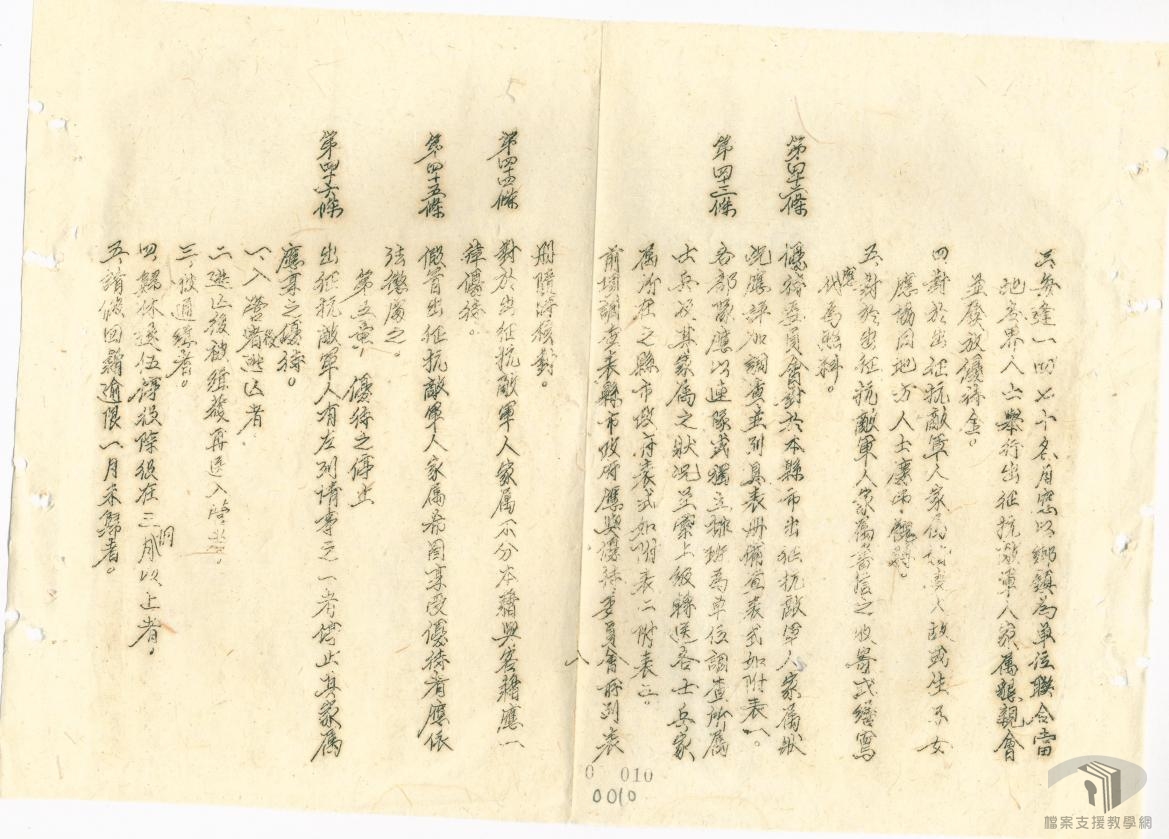 三、每逢一四七十各月應以鄉鎮為單位聯合當
地各界人士舉行出征抗敵軍人家屬懇親會
並發放優待金。
四、對於出征抗敵軍人家屬遭喪大故或生子女
應協同地方人士慶弔餽賻。
五、對於出征抗敵軍人家屬書信之收寄或繕寫
應代為照料。
第四十二條 優待委員會對於本縣市出征抗敵軍人家屬狀
況應詳加調查並列具表冊備查表式如附表一。
第四十三條 各部隊應以連隊或獨立排班為單位調查所屬
士兵及其家屬之狀況呈彙上級轉送各士兵家
屬所在之縣市政府表式如附表二附表三。
前項調查表縣市政府應與優待委員會所列表
八
冊隨時核對。
第四十四條 對於出征抗敵軍人家屬不分本籍與客籍應一
律優待。
第四十五條 假冒出征抗敵軍人家屬希圖享受優待者應依
法懲處之。
第五章 優待之停止
第四十六條 出征抗敵軍人有左列情事之一者停止其家屬
應享之優待。
一、入營後逃亡者
二、逃亡後被緝獲再送入營者。
三、被通緝者。
四、歸休退伍停役除役在三個月以上者。
五、請假回籍逾限一月未歸者。
0 010
0010
檔案支援教學網